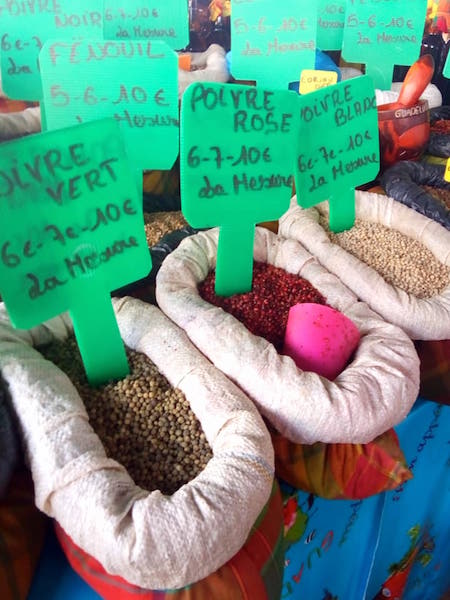 POIVRE NOIR
6€-7€-10€
La Mesure
10€
La Mesure
FÉNOUIL
5-6-10€
La Mesure
6-7-10€
La Mesure
5-6-10€
La Mesure
POIVRE
ROSE
6-7-10€
La Mesure
POIVRE
BLANC
6€-7€-10€
La Mesure
POIVRE
VERT
6€-7€-10€
La Mesure